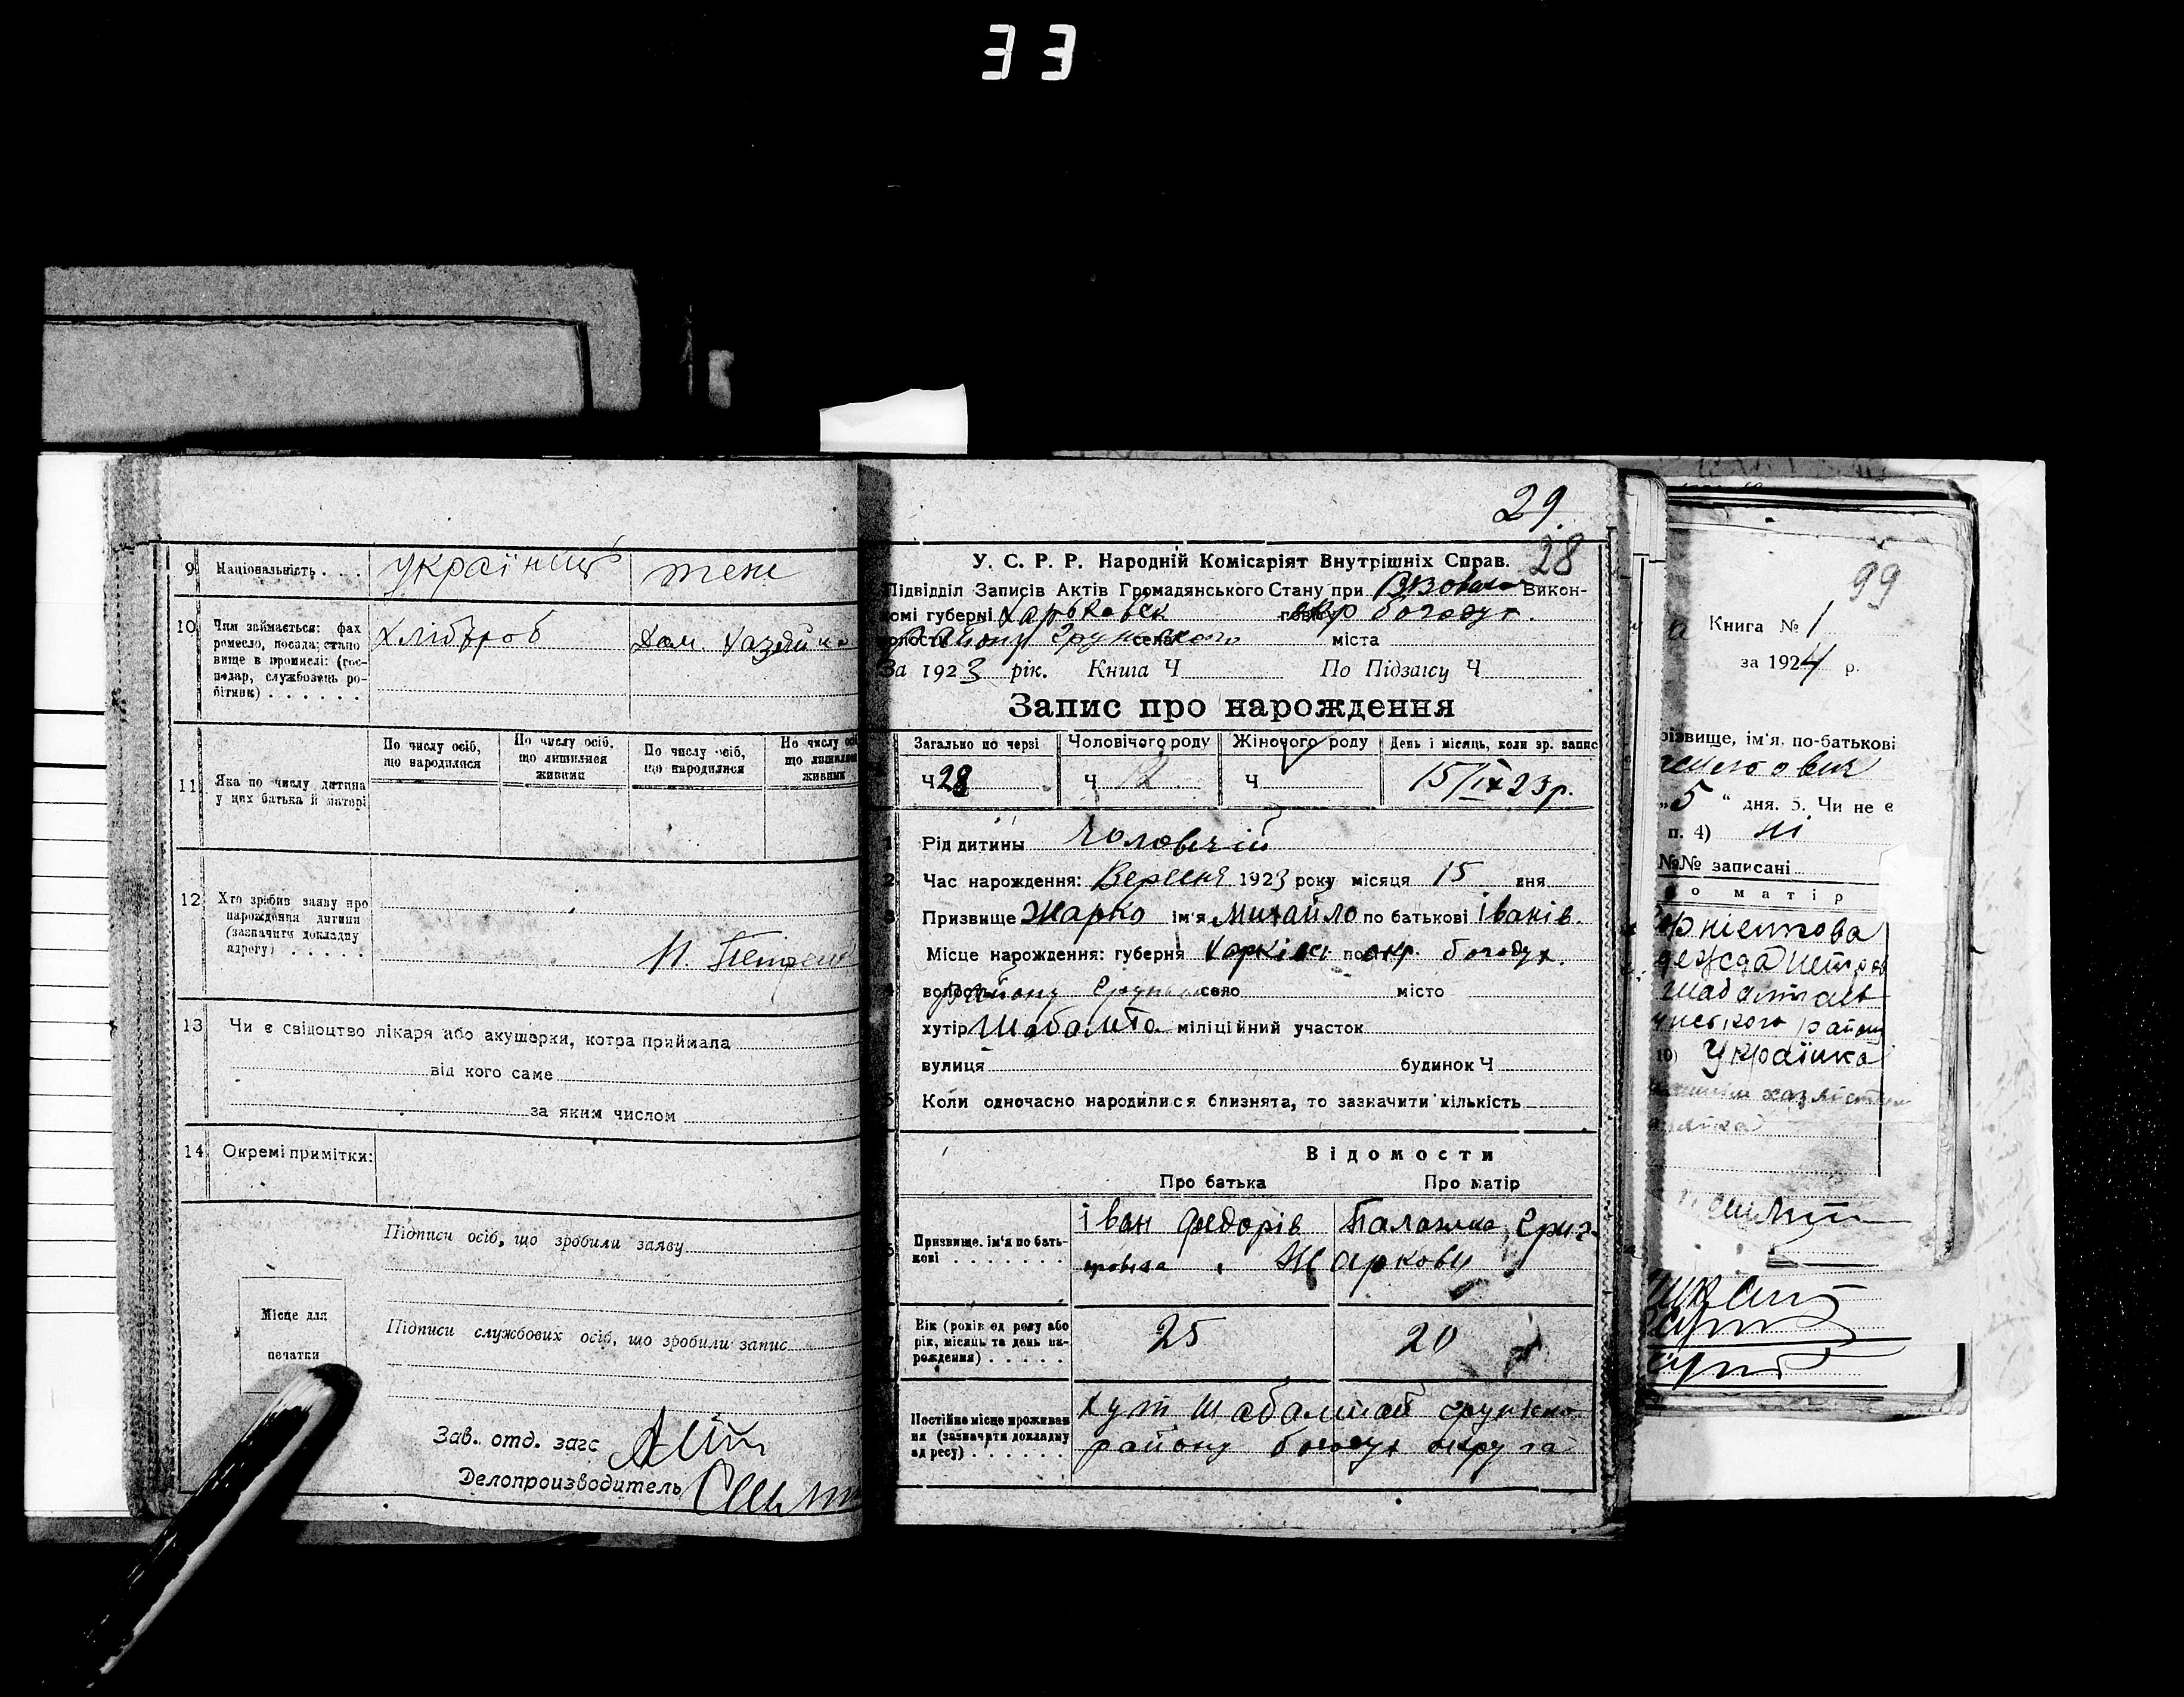 33
9 Національність . . . . українець теж
10 Чим займається: фах
ремесло, посада; стано
вище в промислі: (гос-
подар, службовець ро-
бітник) . . . . . .
Хлібороб Дом. Хазяйка
11 Яка по числу дитина
у цих батька й матері
По числу осіб,
що народилися
По числу осіб,
що лишилися
живими
По числу осіб,
що народилися
По числу осіб
що лишилися
живими
12 Хто зробив заяву про
народження дитини
(зазначити докладну
адресу) . . . . .
13 Чи є свідоцтво лікаря або акушерки, котра приймала
від кого саме
за яким числом
14 Окремі примітки:
Підписи осіб, що зробили заяву
Місце для
печатки
Підписи службових осіб, що зробили запис
Зав. отд. загс
Делопроизводитель
29.
28
У. С. Р. Р. Народній Комісаріят Внутрішніх Справ.
Підвідділ Записів Актів Громадянського Стану при Викон-
комі губерні Харьковск окр богодух.
району села міста
За 1923 рік. Книга Ч По Підзагсу Ч
Запис про нарождення
Загально по черзі Чоловічого роду Жіночого роду День і місяць, коли зр. запис
Ч 28 Ч 12 Ч 15/IX 23 р.
1 Рід дитини Чоловічій
2 Час нарождення: Вересня 1923 року місяця 15 дня
3 Призвище Жарко ім'я Михайло по батькові Іванів.
Місце нарождення: губерня Харківск окр. богодух.
4 волость району село місто
хутір міліційний участок
вулиця будинок Ч
5 Коли одночасно народилися близнята, то зазначити кількість
Відомости
Про батька Про матір
6 Призвище, ім'я по бать-
кові . . . . . . .
Іван Федорів Палажка Григ
Жаркови
7 Вік (років од роду або
рік, місяць та день на-
рождення) . . . . .
25 20
Постійне місце проживан
ня (зазначити докладну
адресу) . . . . . .
хут
району богодух округа
99
Книга № 1
за 1924 р.
різвище, ім'я, по-батькові
„5 “ дня. 5. Чи не є
п. 4) ні
№№ записані
о матір
району
10) Українка